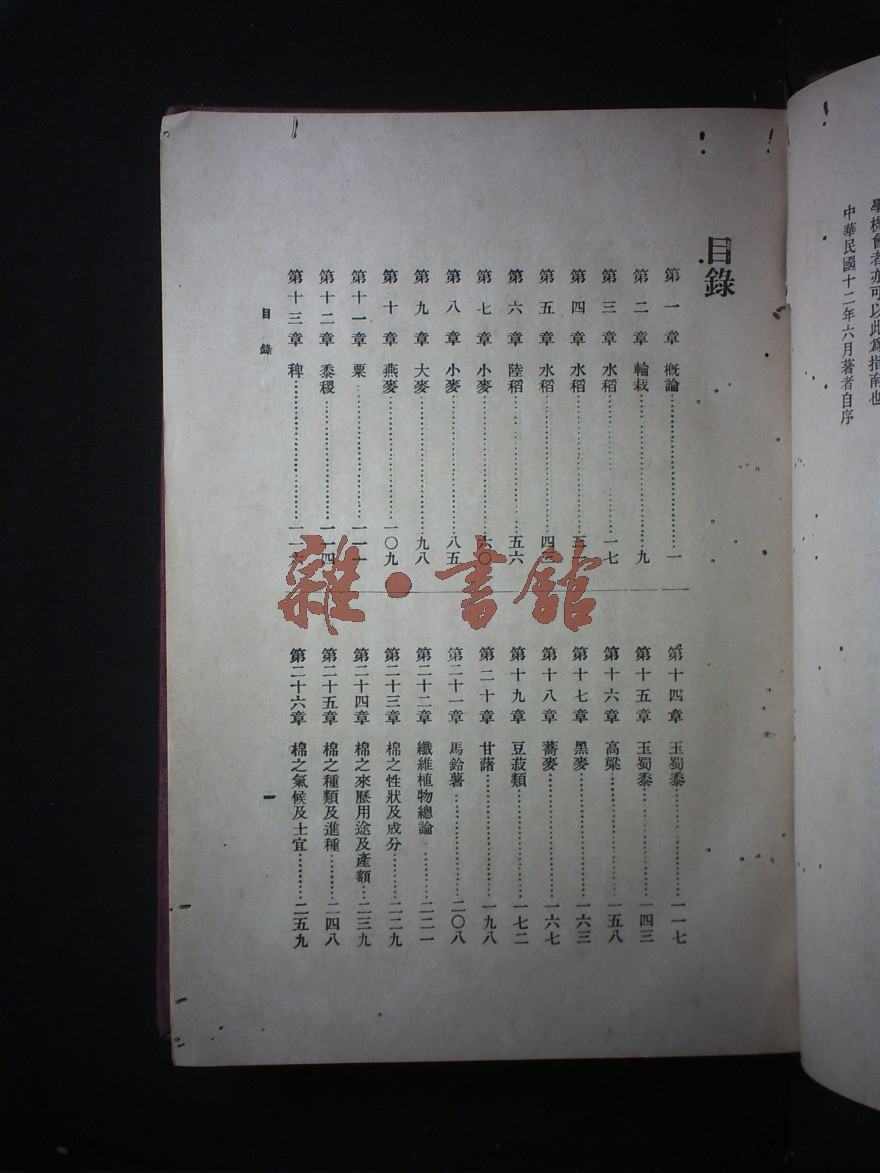 學樹會者亦可以此爲指南也
中華民國十二年六月著者自序
目錄
第一章 概論……一
第二章 輪栽……九
第三章 水稻……一七
第四章 水稻……三
第五章 水稻……四
第六章 陸稻……五六
第七章 小麥……六〇
第八章 小麥……八五
第九章 大麥……九八
第十章 燕麥……一〇九
第十一章 粟……一一一
第十二章 黍稷……一一四
第十三章 稗……一一
第十四章 玉蜀黍……一一七
第十五章 玉蜀黍……一四三
第十六章 高粱……一五八
第十七章 黑麥……一六三
第十八章 蕎麥……一六七
第十九章 豆菽類……一七二
第二十章 甘藷……一九八
第二十一章 馬鈴薯……二〇八
第二十二章 纖維植物總論……二二一
第二十三章 棉之性狀及成分……二二九
第二十四章 棉之來歷用途及產額……二三九
第二十五章 棉之種類及進種……二四八
第二十六章 棉之氣候及土宜……二五九
目錄
一
雜·書館